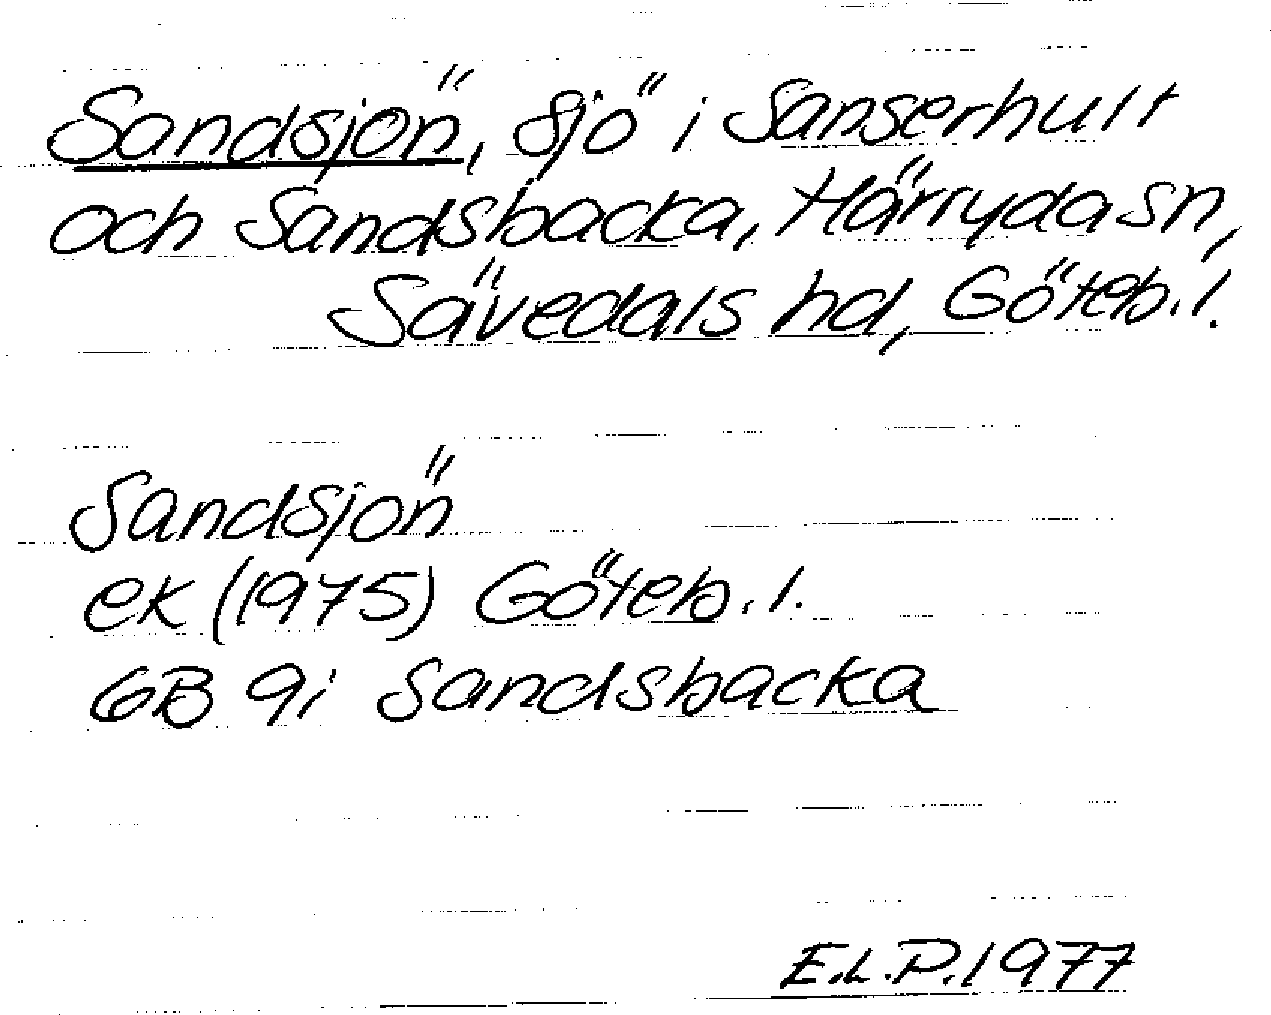 Sandsjön, sjö i Sanserhult
och Sandsbacka, Härryda sn,
Sävedals hd, Göteb. l.
Sandsjön
ek (1975) Göteb. l.
GB 9i Sandsbacka
E.L.P. 1977